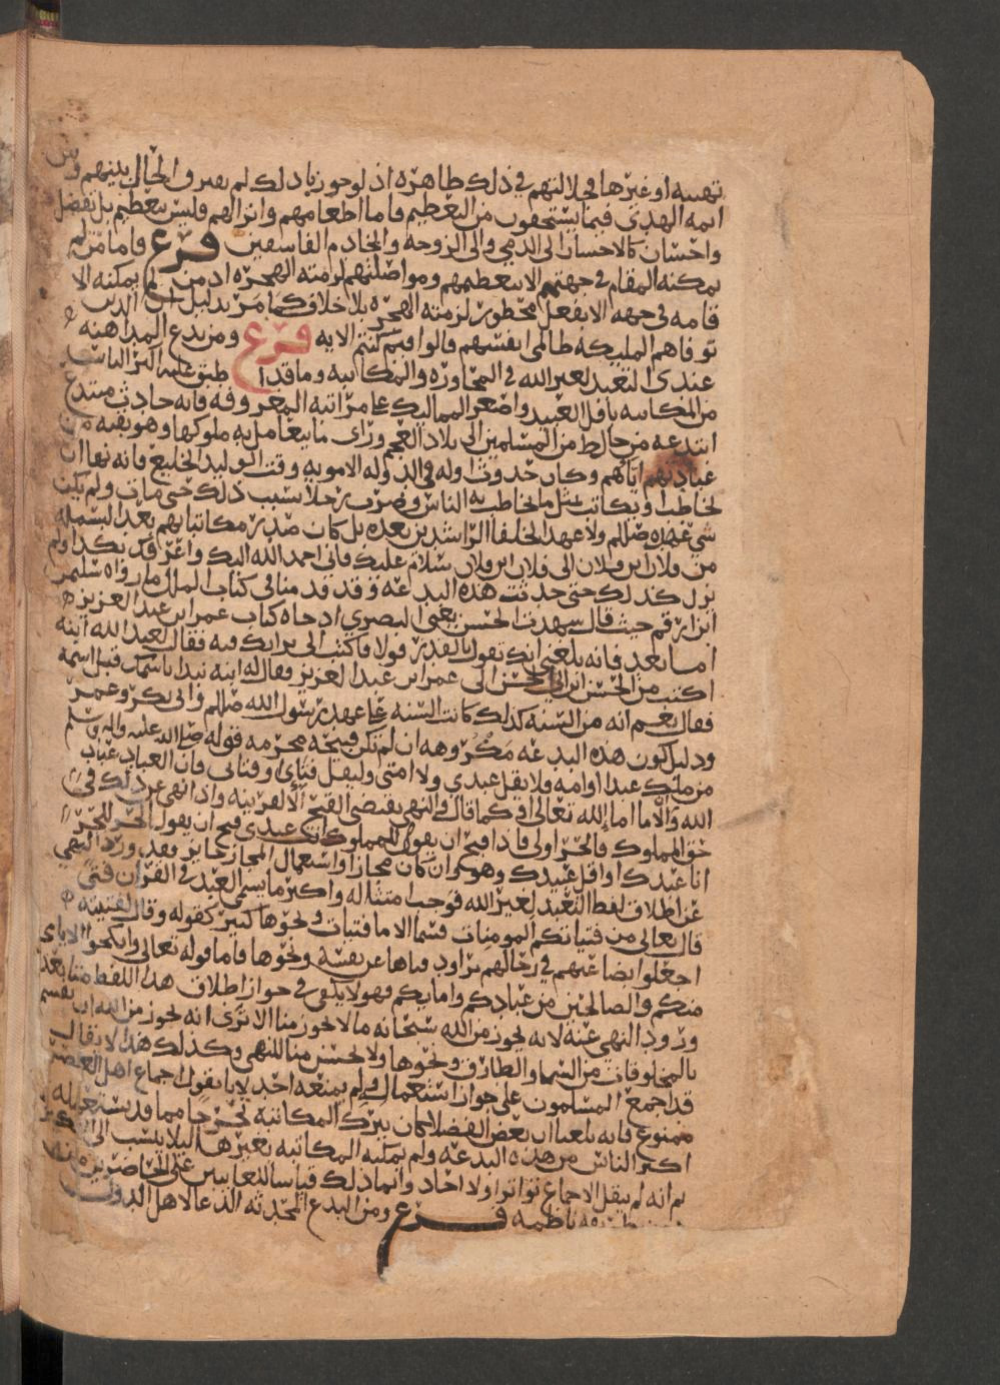 تهنيه او غيرها في جلالتهم في ذلك ظاهره اذ لو جوزنا ذلك لم يفترق الحال بينهم وبين
ايمه الهدى فيما يستحقون من التعظيم فاما اطعامهم وانزالهم فليس بتعظيم بل تفضل
واحسان كالاحسان الى الذمي والى الزوجه والخادم الفاسقين فرع فاما من لم
يمكنه المقام في جهتهم الا بتعظيمهم ومواصلتهم لزمته الهجره اذ من لم يمكنه الا
قامه في جهه الا بفعل محظور لزمته الهجره بلا خلاف كما مر بدليل ان الذين
توفاهم المليكه ظالمي انفسهم قالوا فيم كنتم الايه فرع ومن بدع المداهنه
عندي التعبد لغير الله في المحاوره والمكاتبه وما قد اطبق عليه اكثر الناس
من المكاتبه باقل العبيد واصغر المماليك على مراتبه المعروفه فانه حادث مبتدع
ابتدعه من خالط من المسلمين الى بلاد العجم وراى ما يتعامل به ملوكها وهو بقيه من
عبادتهم اياهم وكان حدوث اوله في الدوله الامويه وقت الوليد الخليع فانه نها ان
يخاطب او يكاتب بمثل ما يخاطب به الناس وضرب رجلا بسبب ذلك حتى مات ولم يكن
شي عهده صللم ولا عهد الخلفا الراشدين بعده بل كان صدر مكاتباتهم بعد البسمله
من فلان ابن فلان الى فلان ابن فلان سلام عليك فاني احمد الله اليك واعز قد بكذا ولم
يزل كذلك حتى حدثت هذه البدعه وقد قدمنا في كتاب الملل ما رواه سليمن
ابن ارقم حيث قال شهدت الحسن يعني البصري اذ جاه كتاب عمر ابن عبد العزيز
اما بعد فانه بلغني انك تقول بالقدر قولا فاكتب الى برايك فيه فقال لعبد الله ابنه
اكتب من الحسن ابن ابي الحسن الى عمر ابن عبد العزيز فقال له ابنه تبدا باسمك قبل اسمه
فقال نعم انه من السنه كذلك كانت السنه على عهد رسول الله صللم وابي بكر وعمر
ودليل كون هذه البدعه مكروهه ان لم تكن قبيحه محرمه قوله صلى الله عليه واله وسلم
من ملك عبدا او امه فلا يقل عبدي ولا امتي وليقل فتاي وفتاتي فان العباد عباد
الله والاما اما الله تعالى او كما قال والنهي يقتضي القبح الا لقرينه واذا نهي عن ذلك في
حق المملوك فالحر اولى فاذا قبح ان يقول للمملوك انك عبدي قبح ان يقول الحر للحر
انا عبدك او اقل عبيدك وهو وان كان مجازا واستعمال المجاز جايز فقد ورد النهي
عن اطلاق لفظ التعبد لغير الله فوجب امتثاله واكثر ما يسمى العبد في القران فتى
قال تعالى من فتياتكم المومنات فسما الاما فتيات ونحوها كثير كقوله وقال لفتيته
اجعلوا بضاعتهم في رحالهم تراود فتاها عن نفسه ونحوها فاما قوله تعالى وانكحوا الايامى
منكم والصالحين من عبادكم وامايكم فهو لا يكفي في جواز اطلاق هذا اللفظ منا بعد
ورود النهي عنه لانه يجوز من الله سبحانه ما لا يجوز منا الا ترى انه يجوز من الله ان يقسم
بالمخلوقات من السما والطارق ونحوها ولا يحسن منا للنهي وكذلك هذا لا يقال
قد اجمع المسلمون على جواز استعماله ولم يمنعه احد لانا نقول اجماع اهل العصر
ممنوع فانه بلغنا ان بعض الفضلا كان يترك المكاتبه تحرجا مما قد يستعمله
اكثر الناس من هذه البدعه ولم يمكنه المكاتبه بغيرها ليلا ينسب الى الكبر
ثم انه لم ينقل الاجماع تواترا ولا احاد وانما ذلك قياسا للغايبين على الحاضرين
فرع ومن البدع المحدثه الدعا لاهل الدول